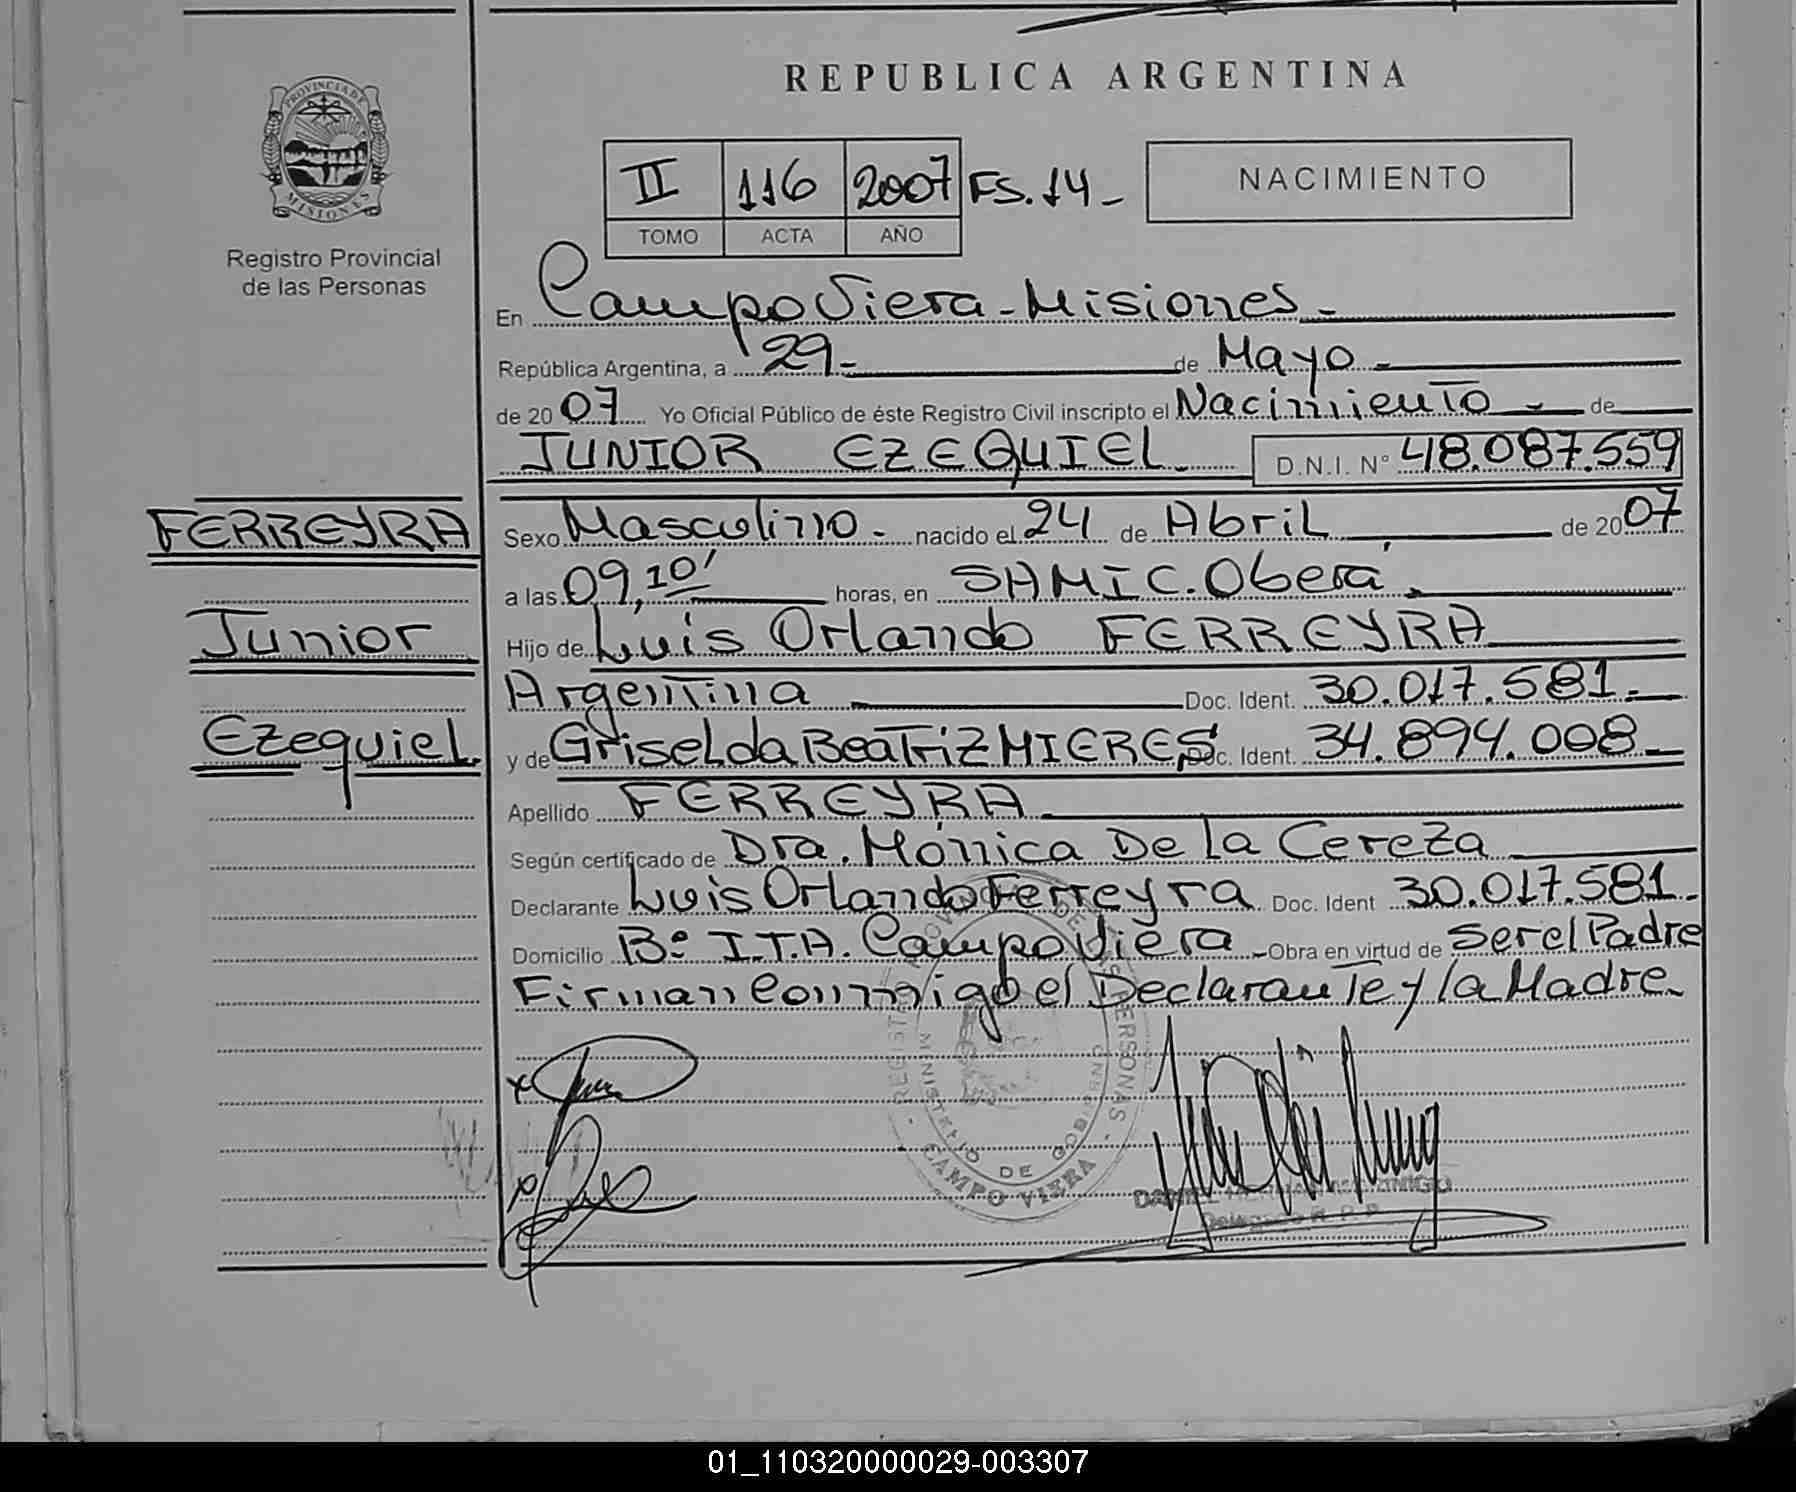 REPUBLICA ARGENTINA
PROVINCIA DE MISIONES
Registro Provincial
de las Personas
II 116 2007 FS. 14-
TOMO ACTA AÑO
NACIMIENTO
En Campo Viera - Misiones -
República Argentina, a 29- de Mayo -
de 2007 Yo Oficial Público de éste Registro Civil inscripto el Nacimiento - de
JUNIOR EZEQUIEL. D.N.I. Nº 48.087.559
FERREYRA
Junior
Ezequiel
Sexo Masculino - nacido el 24 de Abril de 2007
a las 09,10' horas, en SAMIC. Oberá.
Hijo de Luis Orlando FERREYRA
Argentina Doc. Ident. 30.017.581.-
y de Griselda Beatriz MIERES, Doc. Ident. 34.894.008-
Apellido FERREYRA
Según certificado de Dra. Mónica De la Cereza
Declarante Luis Orlando Ferreyra Doc. Ident 30.017.581-
Domicilio Bº I.T.A. Campo Viera - Obra en virtud de Ser el Padre
Firman Conmigo el Declarante y la Madre.
REGISTRO PROVINCIAL DE LAS PERSONAS
MINISTERIO DE GOBIERNO
- CAMPO VIERA -
Delegado R. P. P.
01_110320000029-003307